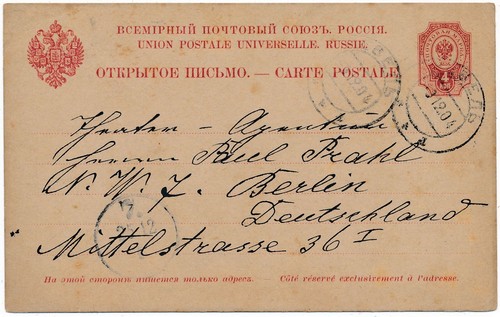 ВСЕМІРНЫЙ ПОЧТОВЫЙ СОЮЗЪ. РОССІЯ.
UNION POSTALE UNIVERSELLE. RUSSIE.
ОТКРЫТОЕ ПИСЬМО. — CARTE POSTALE
Theater - Agentur
Herrn Paul Prahl
N. W. 7. Berlin
Deutschland
Mittelstrasse 36 I
На этой сторонѣ пишется только адресъ.
Côté réservé exclusivement à l'adresse.